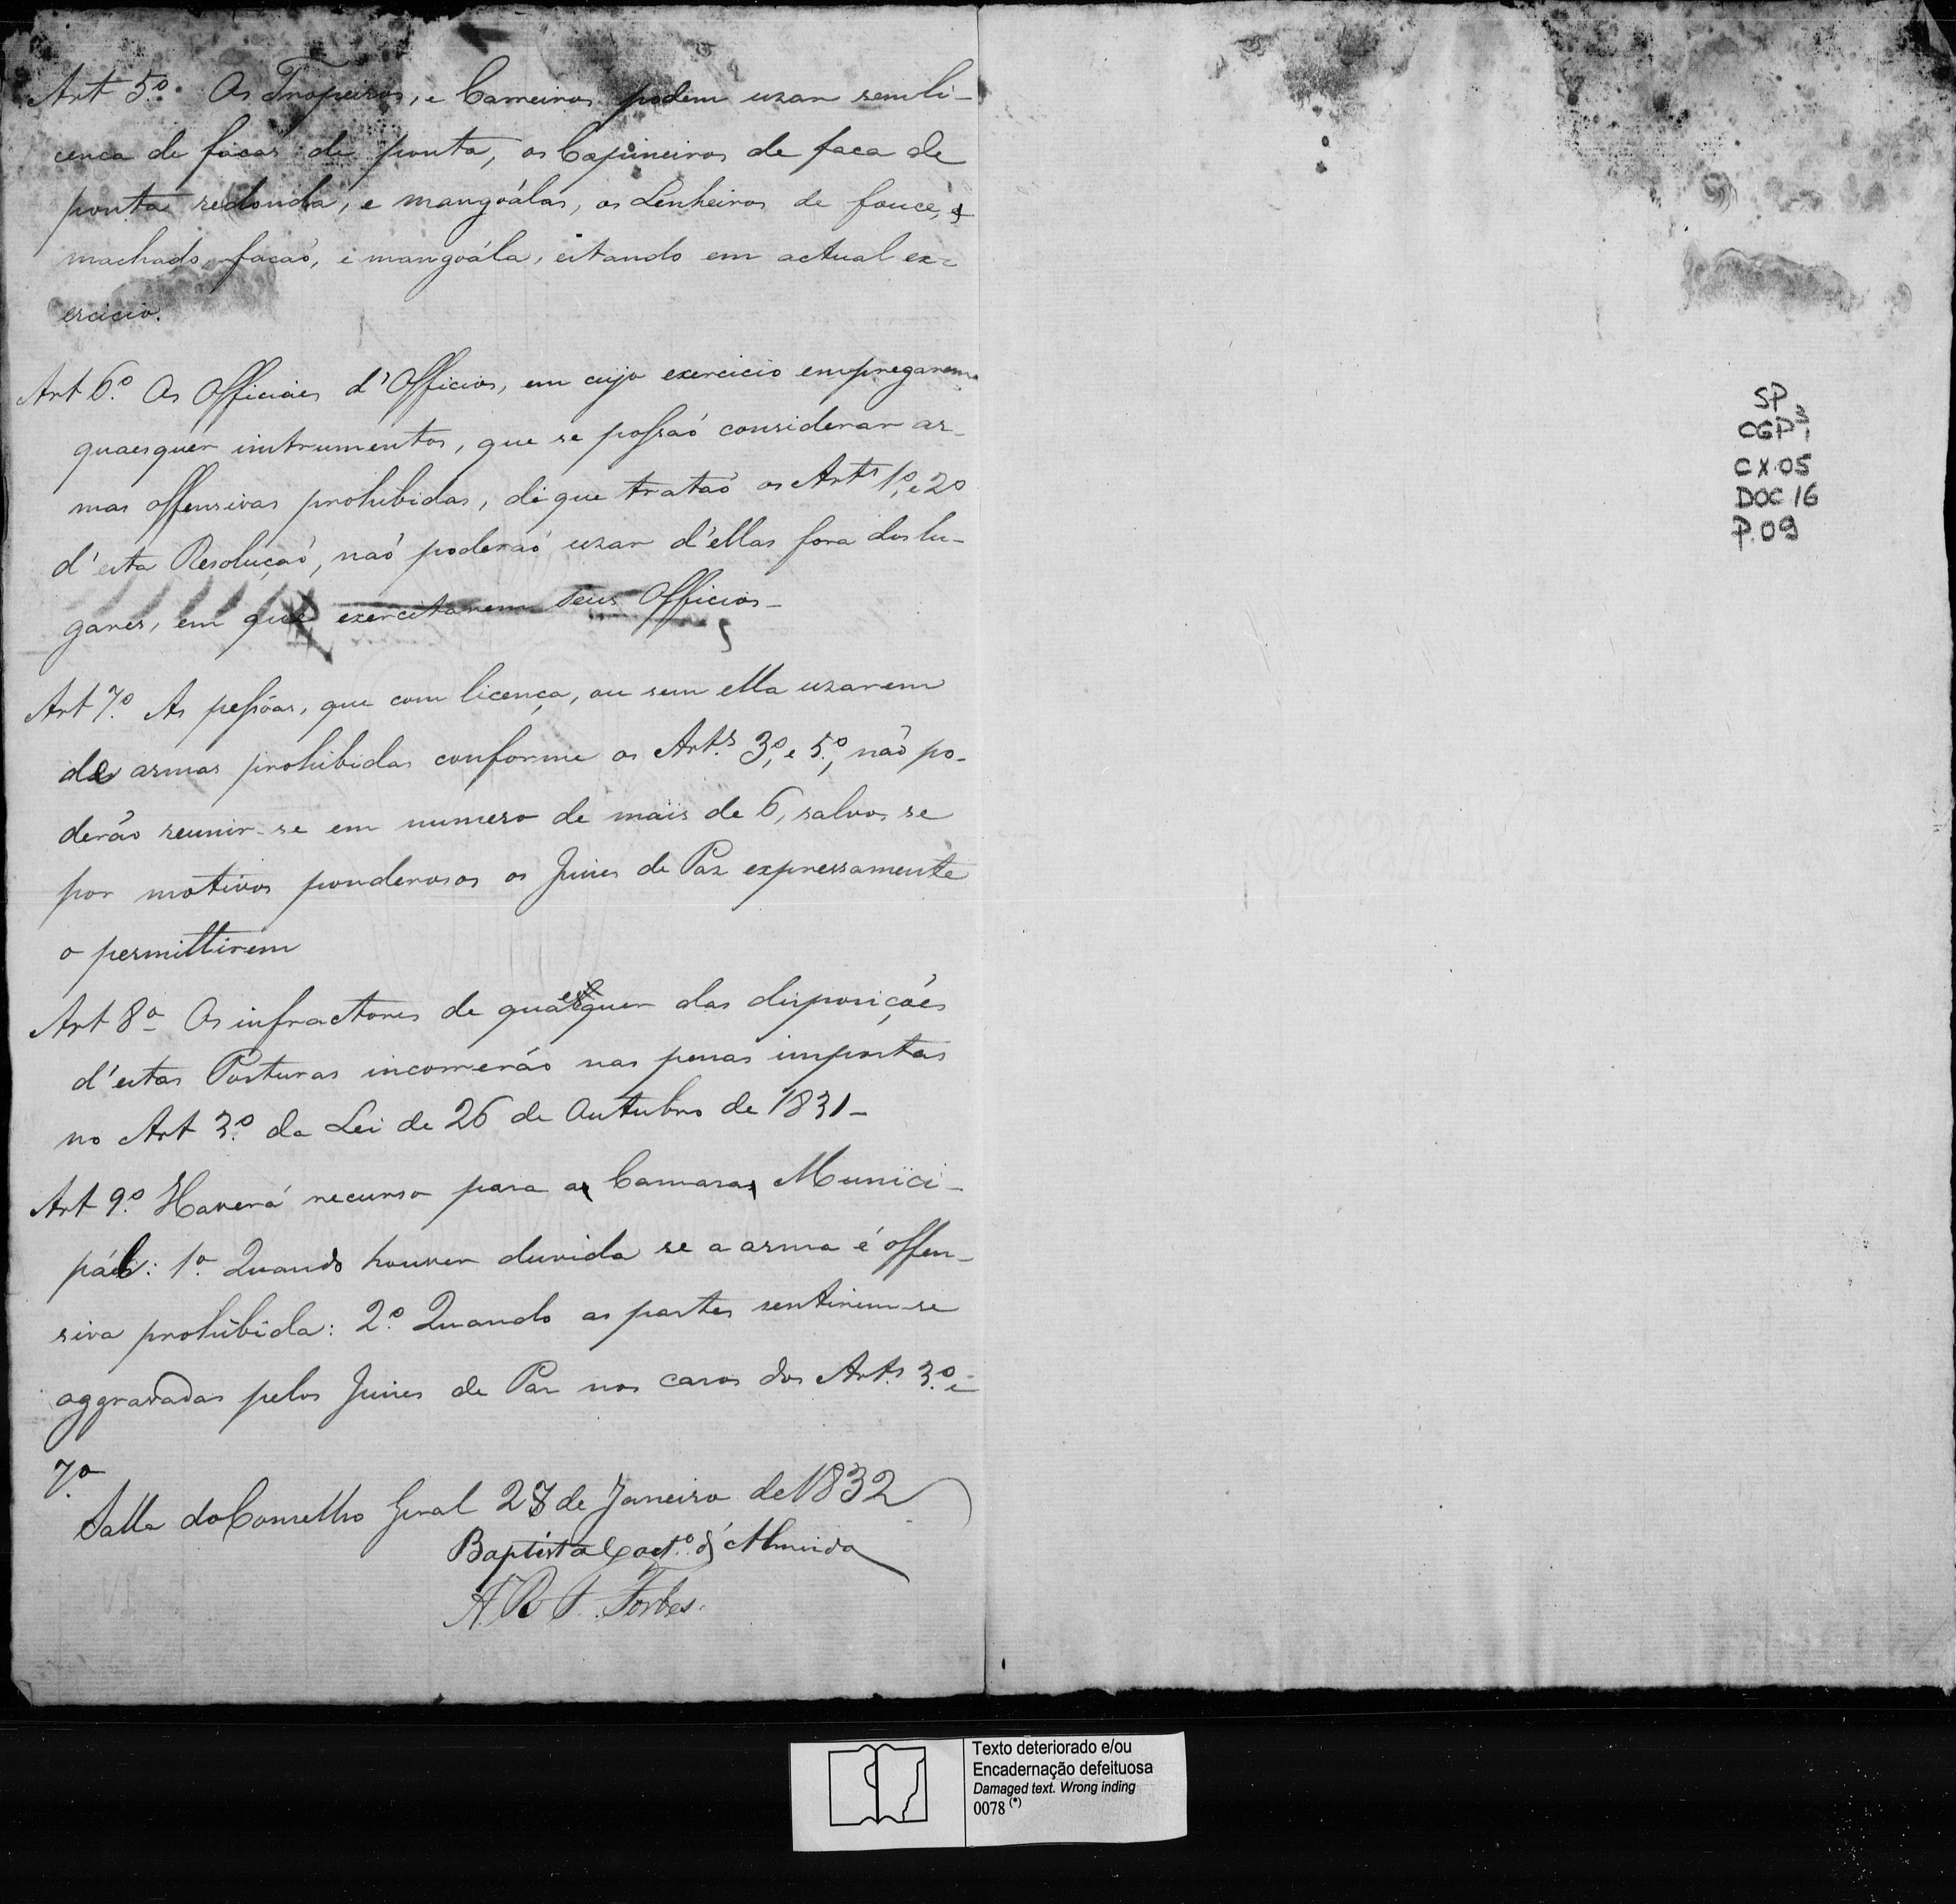 Art 5.º Os Tropeiros, e Carreiros podem uzar sem li-
cenca de facas de ponta, os Capineiros de faca de
ponta redonda, e mangoálas, os Lenheiros de fouce, e
machado, facaõ, e mangoála, estando em actual ex-
ercicio.
Art 6.º Os Officiaes d'Officios, em cujo exercicio empregarem
quaesquer instrumentos, que se possaõ considerar ar-
mas offensivas prohibidas, de que trataõ os Art.s 1.º, e 2.º
d'esta Resoluçaõ, naõ poderaõ uzar d'ellas fora dos lu-
gares, em que exercitarem seus Officios-
Art 7.º As pessôas, que com licença, ou sem ella uzarem
de armas prohibidas conforme os Art.s 3.º, e 5.º, não po-
derão reunir-se em numero de mais de 6, salvo se
por motivos ponderosos os Juises de Paz expressamente
o permittirem
Art 8º Os infractores de quaesquer das disposições
d'estas Posturas incorrerão nas penas impostas
no Art 3.º da Lei de 26 de Outubro de 1831-
Art 9.º Haverá recurso para a Camara Munici-
pal: 1.º Quando houver duvida se a arma é offen-
siva prohibida: 2.º Quando as partes sentirem-se
aggravadas pelos Juises de Paz nos casos dos Art.s 3.º e
7.º
Salla do Conselho Geral 27 de Janeiro de 1832
Baptista Caet.º d'Almeida
Forbes.
SP
CGP³1
CX.05
DOC 16
P.09
Texto deteriorado e/ou
Encadernação defeituosa
Damaged text. Wrong inding
0078 (*)